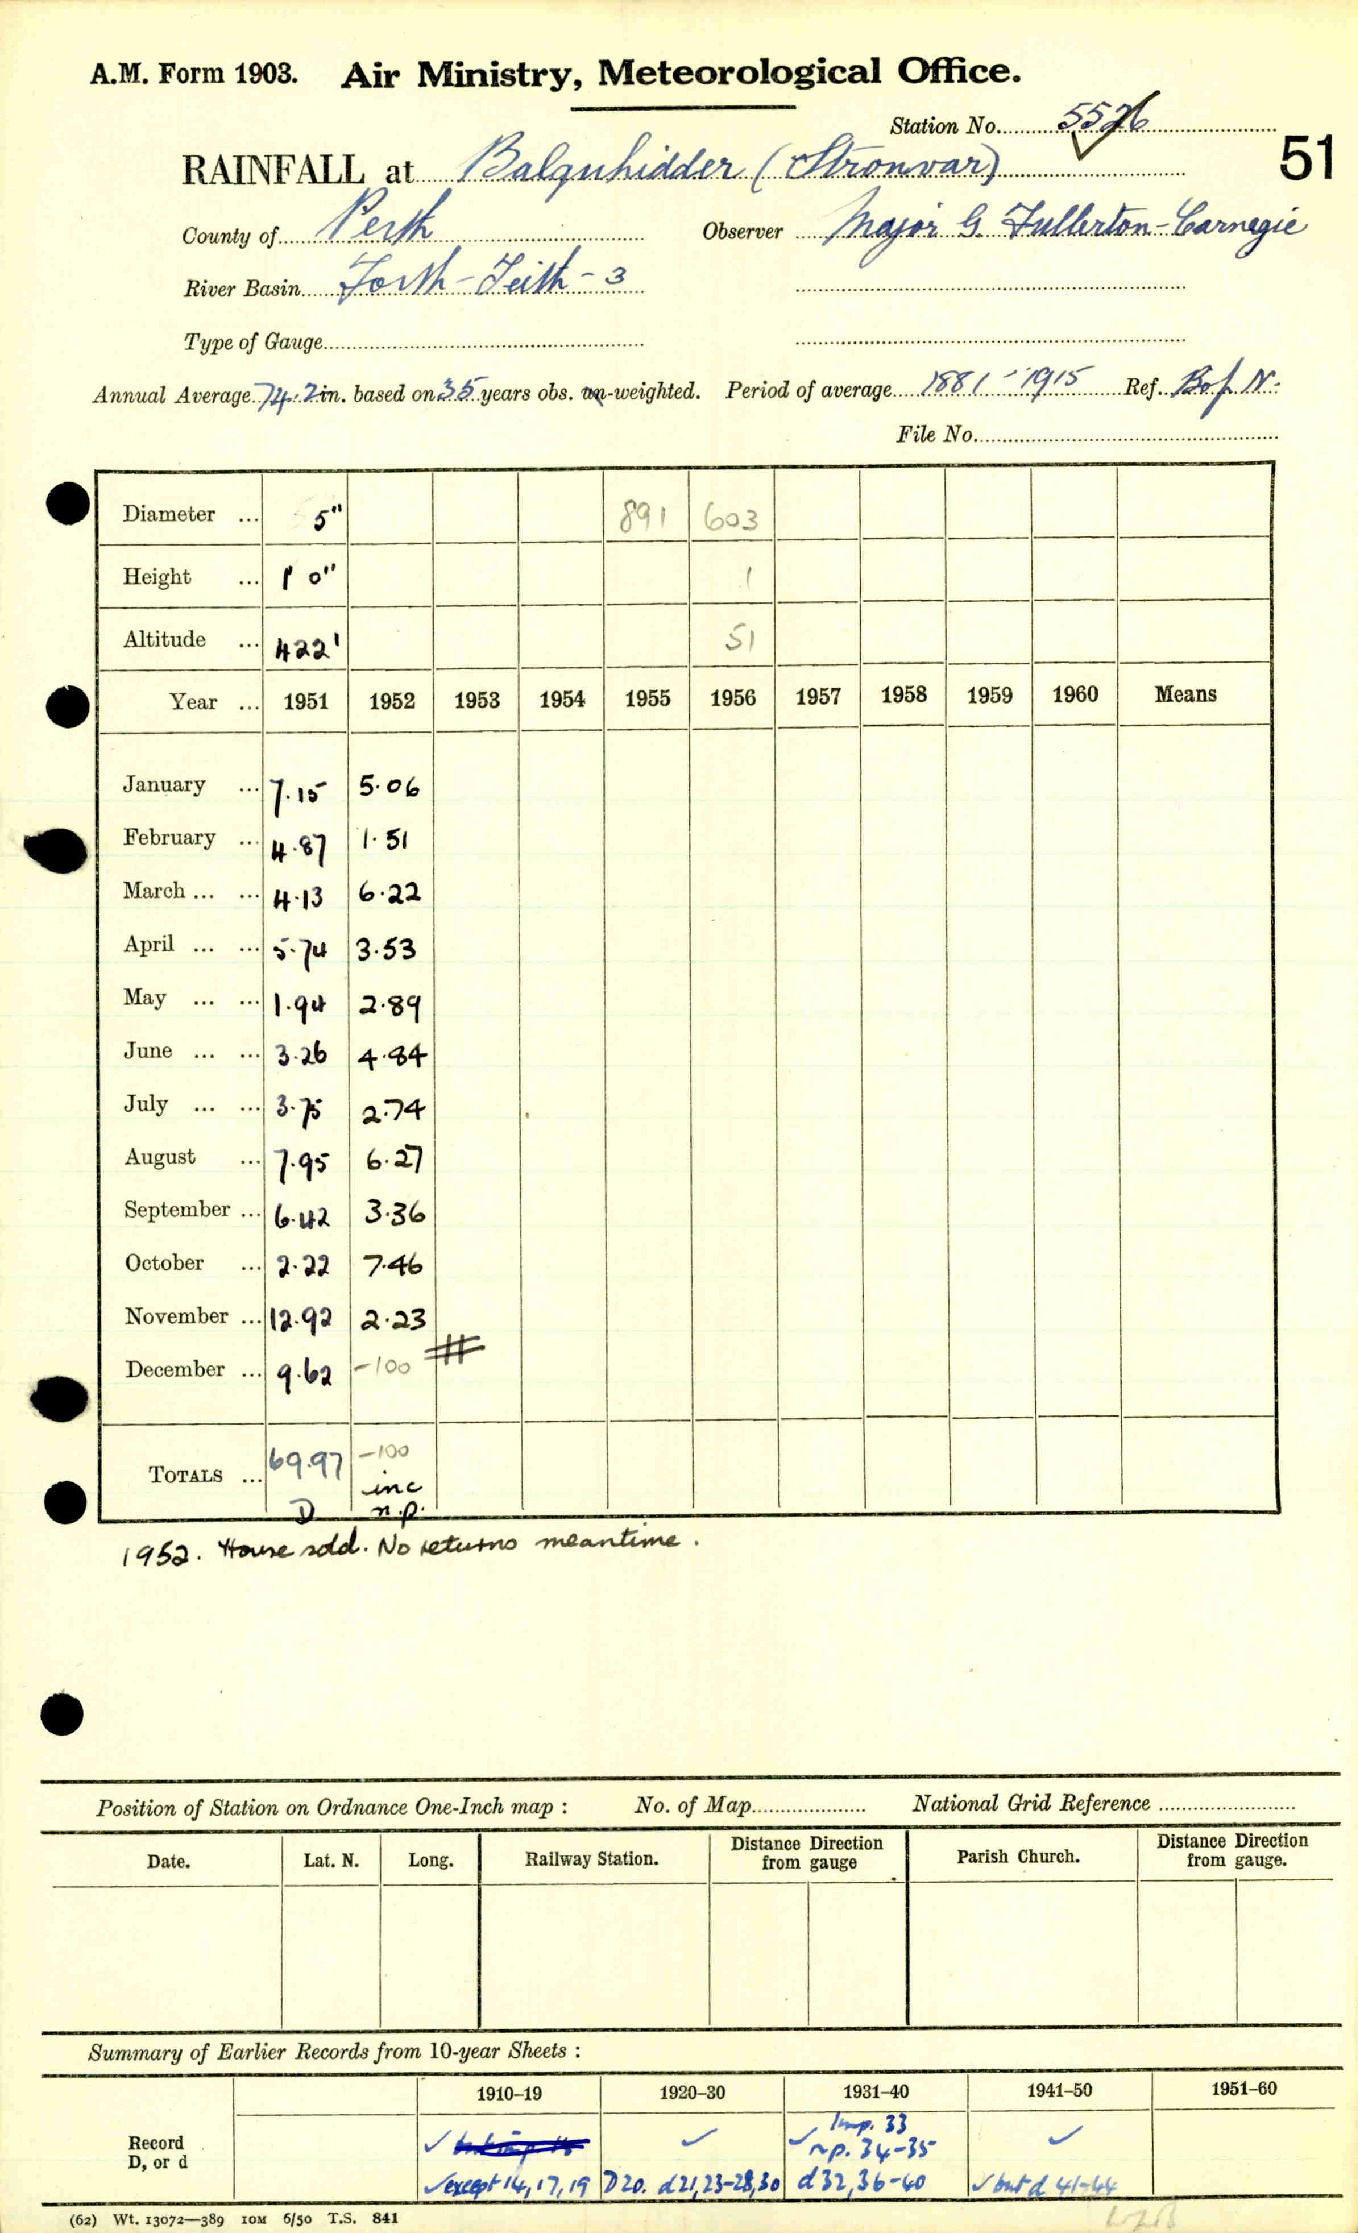 A.M. Form 1903. Air Ministry, Meteorological Office.
Station No. 5526
51
RAINFALL at Balquhidder (Stronvar)
County of Perth Observer Major G. Fullerton-Carnegie
River Basin Forth - Teith - 3
Type of Gauge
Annual Average 74.2 in. based on 35 years obs. un-weighted. Period of average 1881-1915 Ref. B of N.
File No.
Diameter ... 5" 891 603
Height ... 1' 0" 1
Altitude ... 422' 51
Year ... 1951 1952 1953 1954 1955 1956 1957 1958 1959 1960 Means
January ... 7.15 5.06
February ... 4.87 1.51
March ... ... 4.13 6.22
April ... ... 5.74 3.53
May ... ... 1.94 2.89
June ... ... 3.26 4.84
July ... ... 3.75 2.74
August ... 7.95 6.27
September ... 6.42 3.36
October ... 2.22 7.46
November ... 12.92 2.23
December ... 9.62 -100
TOTALS ... 69.97 -100
inc
D n.p.
1952. House sold. No returns meantime.
Position of Station on Ordnance One-Inch map : No. of Map National Grid Reference
Date. Lat. N. Long. Railway Station. Distance from gauge Direction Parish Church. Distance from gauge. Direction
Summary of Earlier Records from 10-year Sheets :
1910-19 1920-30 1931-40 1941-50 1951-60
Record D, or d
✓ ✓ ✓ Imp. 33 ✓
n.p. 34-35
✓ except 14, 17, 19 D20. d21, 23-28, 30 d 32, 36-40 ✓ but d 41-44
(62) Wt. 13072—389 10M 6/50 T.S. 841